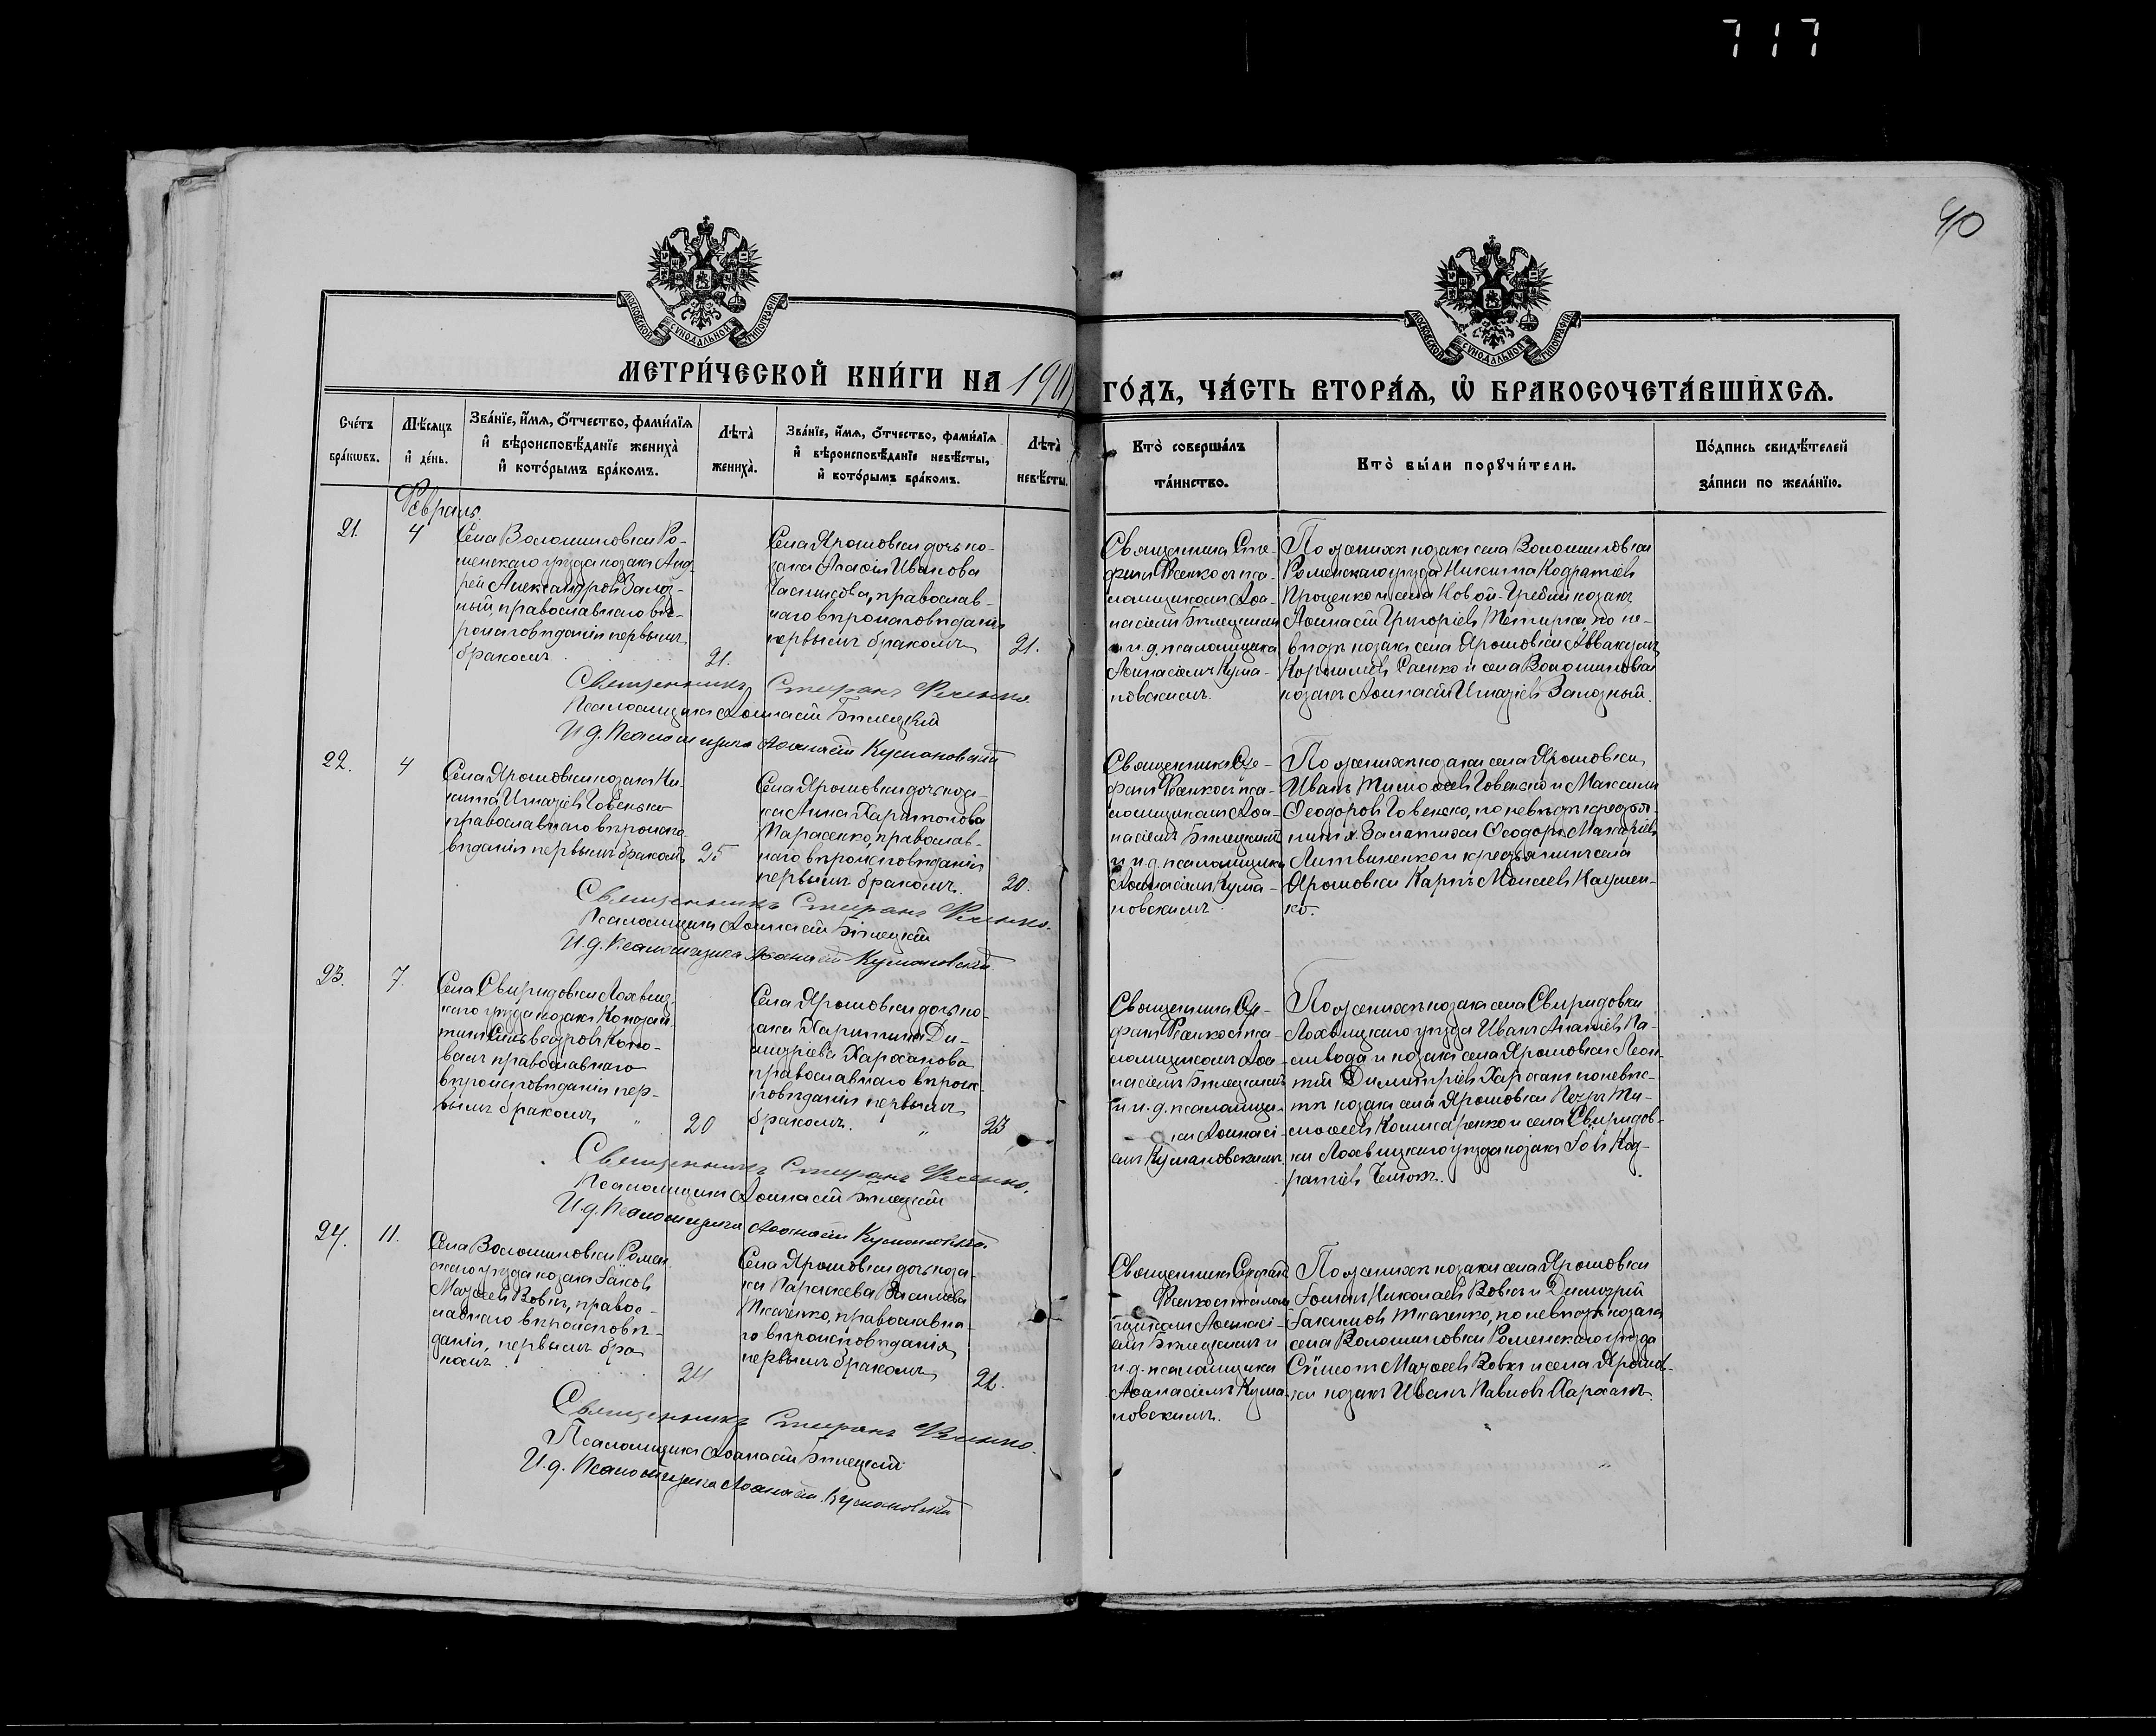 717
40
МОСКОВСКОЙ СѴНОДАЛЬНОЙ ТИПОГРАФІИ
МОСКОВСКОЙ СѴНОДАЛЬНОЙ ТИПОГРАФІИ
МЕТРИ́ЧЕСКОЙ КНИ́ГИ НА 190
ГО́ДЪ, ЧА́СТЬ ВТОРА́Я, Ѡ БРАКОСОЧЕТА́ВШИХСЯ.
Сче́тъ бра́кѡвъ.
Мѣ́сяцъ и де́нь.
Зва́нїе, и́мя, о́тчество, фами́лїя и вѣроисповѣ́данїе жениха̀ и кото́рымъ бра́комъ.
Лѣта̀ жениха̀.
Зва́нїе, и́мя, о́тчество, фами́лїя и вѣроисповѣ́данїе невѣ́сты, и кото́рымъ бра́комъ.
Лѣта̀ невѣ́сты.
Кто̀ соверша́лъ та́инство.
Кто̀ бы́ли порꙋчи́тели.
По́дпись свидѣ́телей за́писи по жела́нїю.
Февраль
21.
4
Села Волошиновки Ро-
менскаго уѣзда козакъ Анд-
рей Александровъ Залоз-
ный православнаго вѣ-
роисповѣданія первымъ
бракомъ
21.
Села Ярошовки дочь ко-
зака Иванова
православ-
наго вѣроисповѣданія
первымъ бракомъ
21.
Священникъ Сте-
фанъ съ пса-
ломщикомъ Аѳа-
насіемъ Бѣлецкимъ
и и.д. псаломщика
Аѳанасіемъ Кума-
новскимъ.
По женихѣ козаки села Волошиновки
Роменскаго уѣзда Никита Кодратіевъ
Проценко и села Новой-Гребли козакъ
Аѳанасій Григоріевъ по не-
вѣстѣ козаки села Ярошовки Аввакумъ
Корниліевъ и села Волошиновки
козакъ Аѳанасій Игнатіевъ Залозный.
Священникъ Стефанъ
Псаломщикъ Аѳанасій Бѣлецкій
И.д. Псаломщика Аѳанасій Кумановскій
22.
4
Села Ярошовки козакъ Ни-
кита Игнатіевъ Говенько
православнаго вѣроиспо-
вѣданія первымъ бракомъ
25
Села Ярошовки дочь коза-
ка Анна Харитонова
Тарасенко, православ-
наго вѣроисповѣданія
первымъ бракомъ.
20.
Священникъ Сте-
фанъ съ пса-
ломщикомъ Аѳа-
насіемъ Бѣлецкимъ
и и.д. псаломщика
Аѳанасіемъ Кума-
новскимъ
По женихѣ козаки села Ярошовки
Иванъ Тимоѳеевъ Говенько и Максимъ
Ѳеодоровъ Говенько, по невѣстѣ крестья-
нинъ Ѳеодоръ Макаріевъ
Литвиненко и крестьянинъ села
Ярошовки Карпъ Моисеевъ Наумен-
ко.
Священникъ Стефанъ
Псаломщикъ Аѳанасій Бѣлецкій
И.д. Псаломщика Аѳанасій Кумановскій.
23.
7.
Села Свиридовки Лохвиц-
каго уѣзда козакъ
Коно-
православнаго
вѣроисповѣданія пер-
вымъ бракомъ "
20
Села Ярошовки дочь ко-
зака Харитина Ди-
митріева Харханова
православнаго вѣроис-
повѣданія первымъ
бракомъ. "
23
Священникъ Сте-
фанъ съ пса-
ломщикомъ Аѳа-
насіемъ Бѣлецкимъ
и и.д. псаломщи-
ка Аѳанасі-
емъ Кумановскимъ
По женихѣ козаки села Свиридовки
Лохвицкаго уѣзда Иванъ
и козакъ села Ярошовки Леон-
тій Димитріевъ Харханъ по невѣс-
тѣ козаки села Ярошовки Петръ Ти-
моѳеевъ и села Свиридов-
ки Лохвицкаго уѣзда козакъ Іовъ Код-
ратіевъ
Священникъ Стефанъ
Псаломщикъ Аѳанасій Бѣлецкій
И.д. Псаломщика Аѳанасій Кумановскій.
24.
11.
Села Волошиновки Ромен-
скаго уѣзда козакъ Іаковъ
Моѵсеевъ Вовкъ, правос-
лавнаго вѣроисповѣ-
данія, первымъ бра-
комъ
24
Села Ярошовки дочь коза-
ка Параскева
Ткаченко, православна-
го вѣроисповѣданія
первымъ бракомъ
Священникъ Стефанъ
съ псалом-
щикомъ Аѳанасі-
емъ Бѣлецкимъ и
и.д. псаломщика
Аѳанасіемъ Кума-
новскимъ.
По женихѣ козаки села Ярошовки
Іоаннъ Николаевъ Вовкъ и Димитрій
Іакимовъ Ткаченко, по невѣстѣ козаки
села Волошиновки Роменскаго уѣзда
Сѵмонъ Моѵсеевъ Вовкъ и села Ярошов-
ки козакъ Иванъ Павловъ Харханъ.
Священникъ Стефанъ
Псаломщикъ Аѳанасій Бѣлецкій
И.д. Псаломщика Аѳанасій Кумановскій